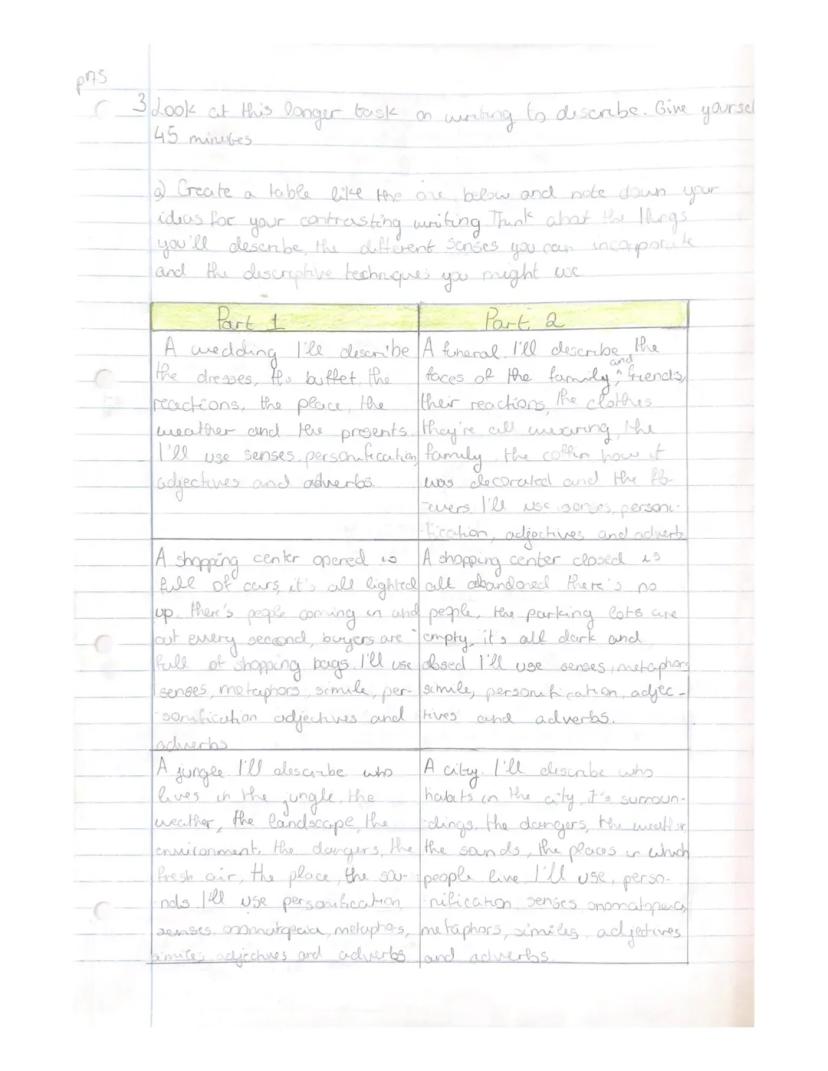 p75
3 Look at this longer task on writing to describe. Give yoursel
45 minutes
a) Create a table like the one below and note down your
ideas for your contrasting writing Think about the things
you'll describe, the different senses you can incorporate
and the descriptive techniques you might use
Part 1
A wedding I'll describe
the dresses, the buffet, the
reactions, the place, the
weather and the presents.
I'll use senses, personification,
adjectives and adverbs.
Part 2
A funeral. I'll describe the
faces of the family and friends,
their reactions, the clothes
they're all wearing, the
family, the coffin how it
was decorated and the flo-
-wers. I'll use senses, personi-
fication, adjectives and adverb
A shopping center opened is
full of cars, it's all lighted
up. there's people coming in and
out every second, buyers are
full of shopping bags. I'll use
senses, metaphors, simile, per-
-sonification adjectives and
adverbs
A shopping center closed is
all abandoned there's no
people, the parking lots are
empty, it's all dark and
closed I'll use senses, metaphors
simile, personification, adjec-
tives and adverbs.
A jungle. I'll describe who
lives in the jungle, the
weather, the landscape, the
environment, the dangers, the
fresh air, the place, the sou-
-nds I'll use personification,
senses, onomatopoeia, metaphors,
similes, adjectives and adverbs
A city. I'll describe who
habits in the city, it's surroun-
-dings, the dangers, the weather
the sounds, the places in which
people live I'll use, perso-
-nification, senses onomatopoeia,
metaphors, similes, adjectives
and adverbs.